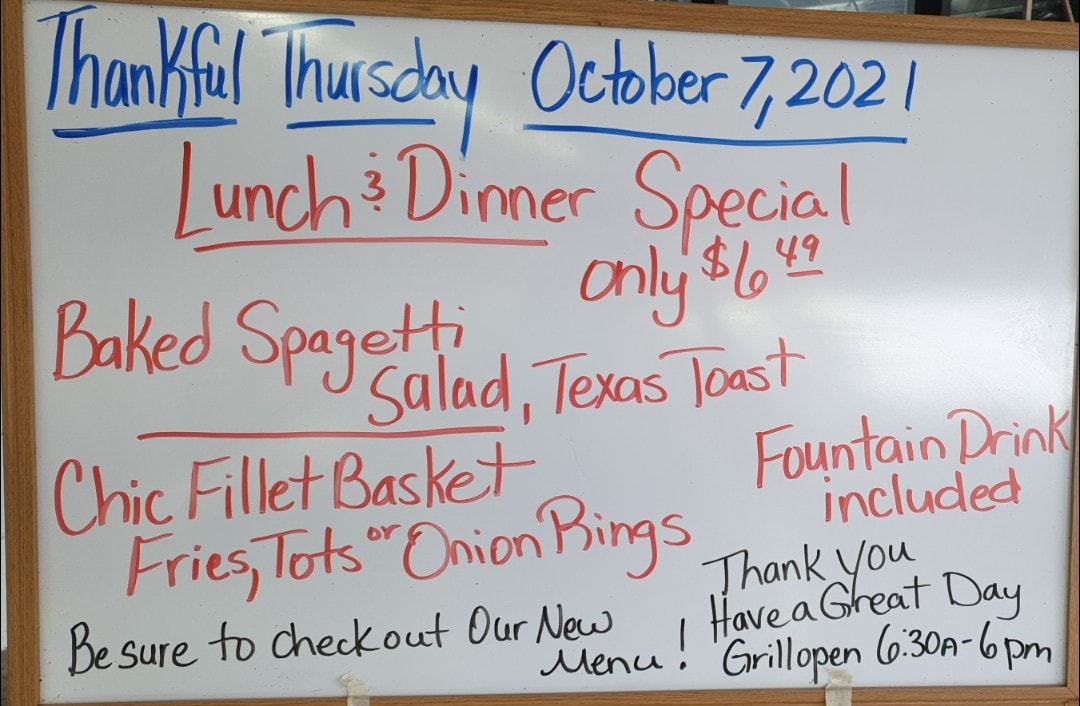 Thankful Thursday October 7, 2021
Lunch & Dinner Special
only $6 49
Baked Spagetti
Salad, Texas Toast
Chic Fillet Basket
Fries, Tots or Onion Rings
Fountain Drink
included
Be sure to checkout Our New
Menu!
Thank you
Have a Great Day
Grill open 6:30A-6pm